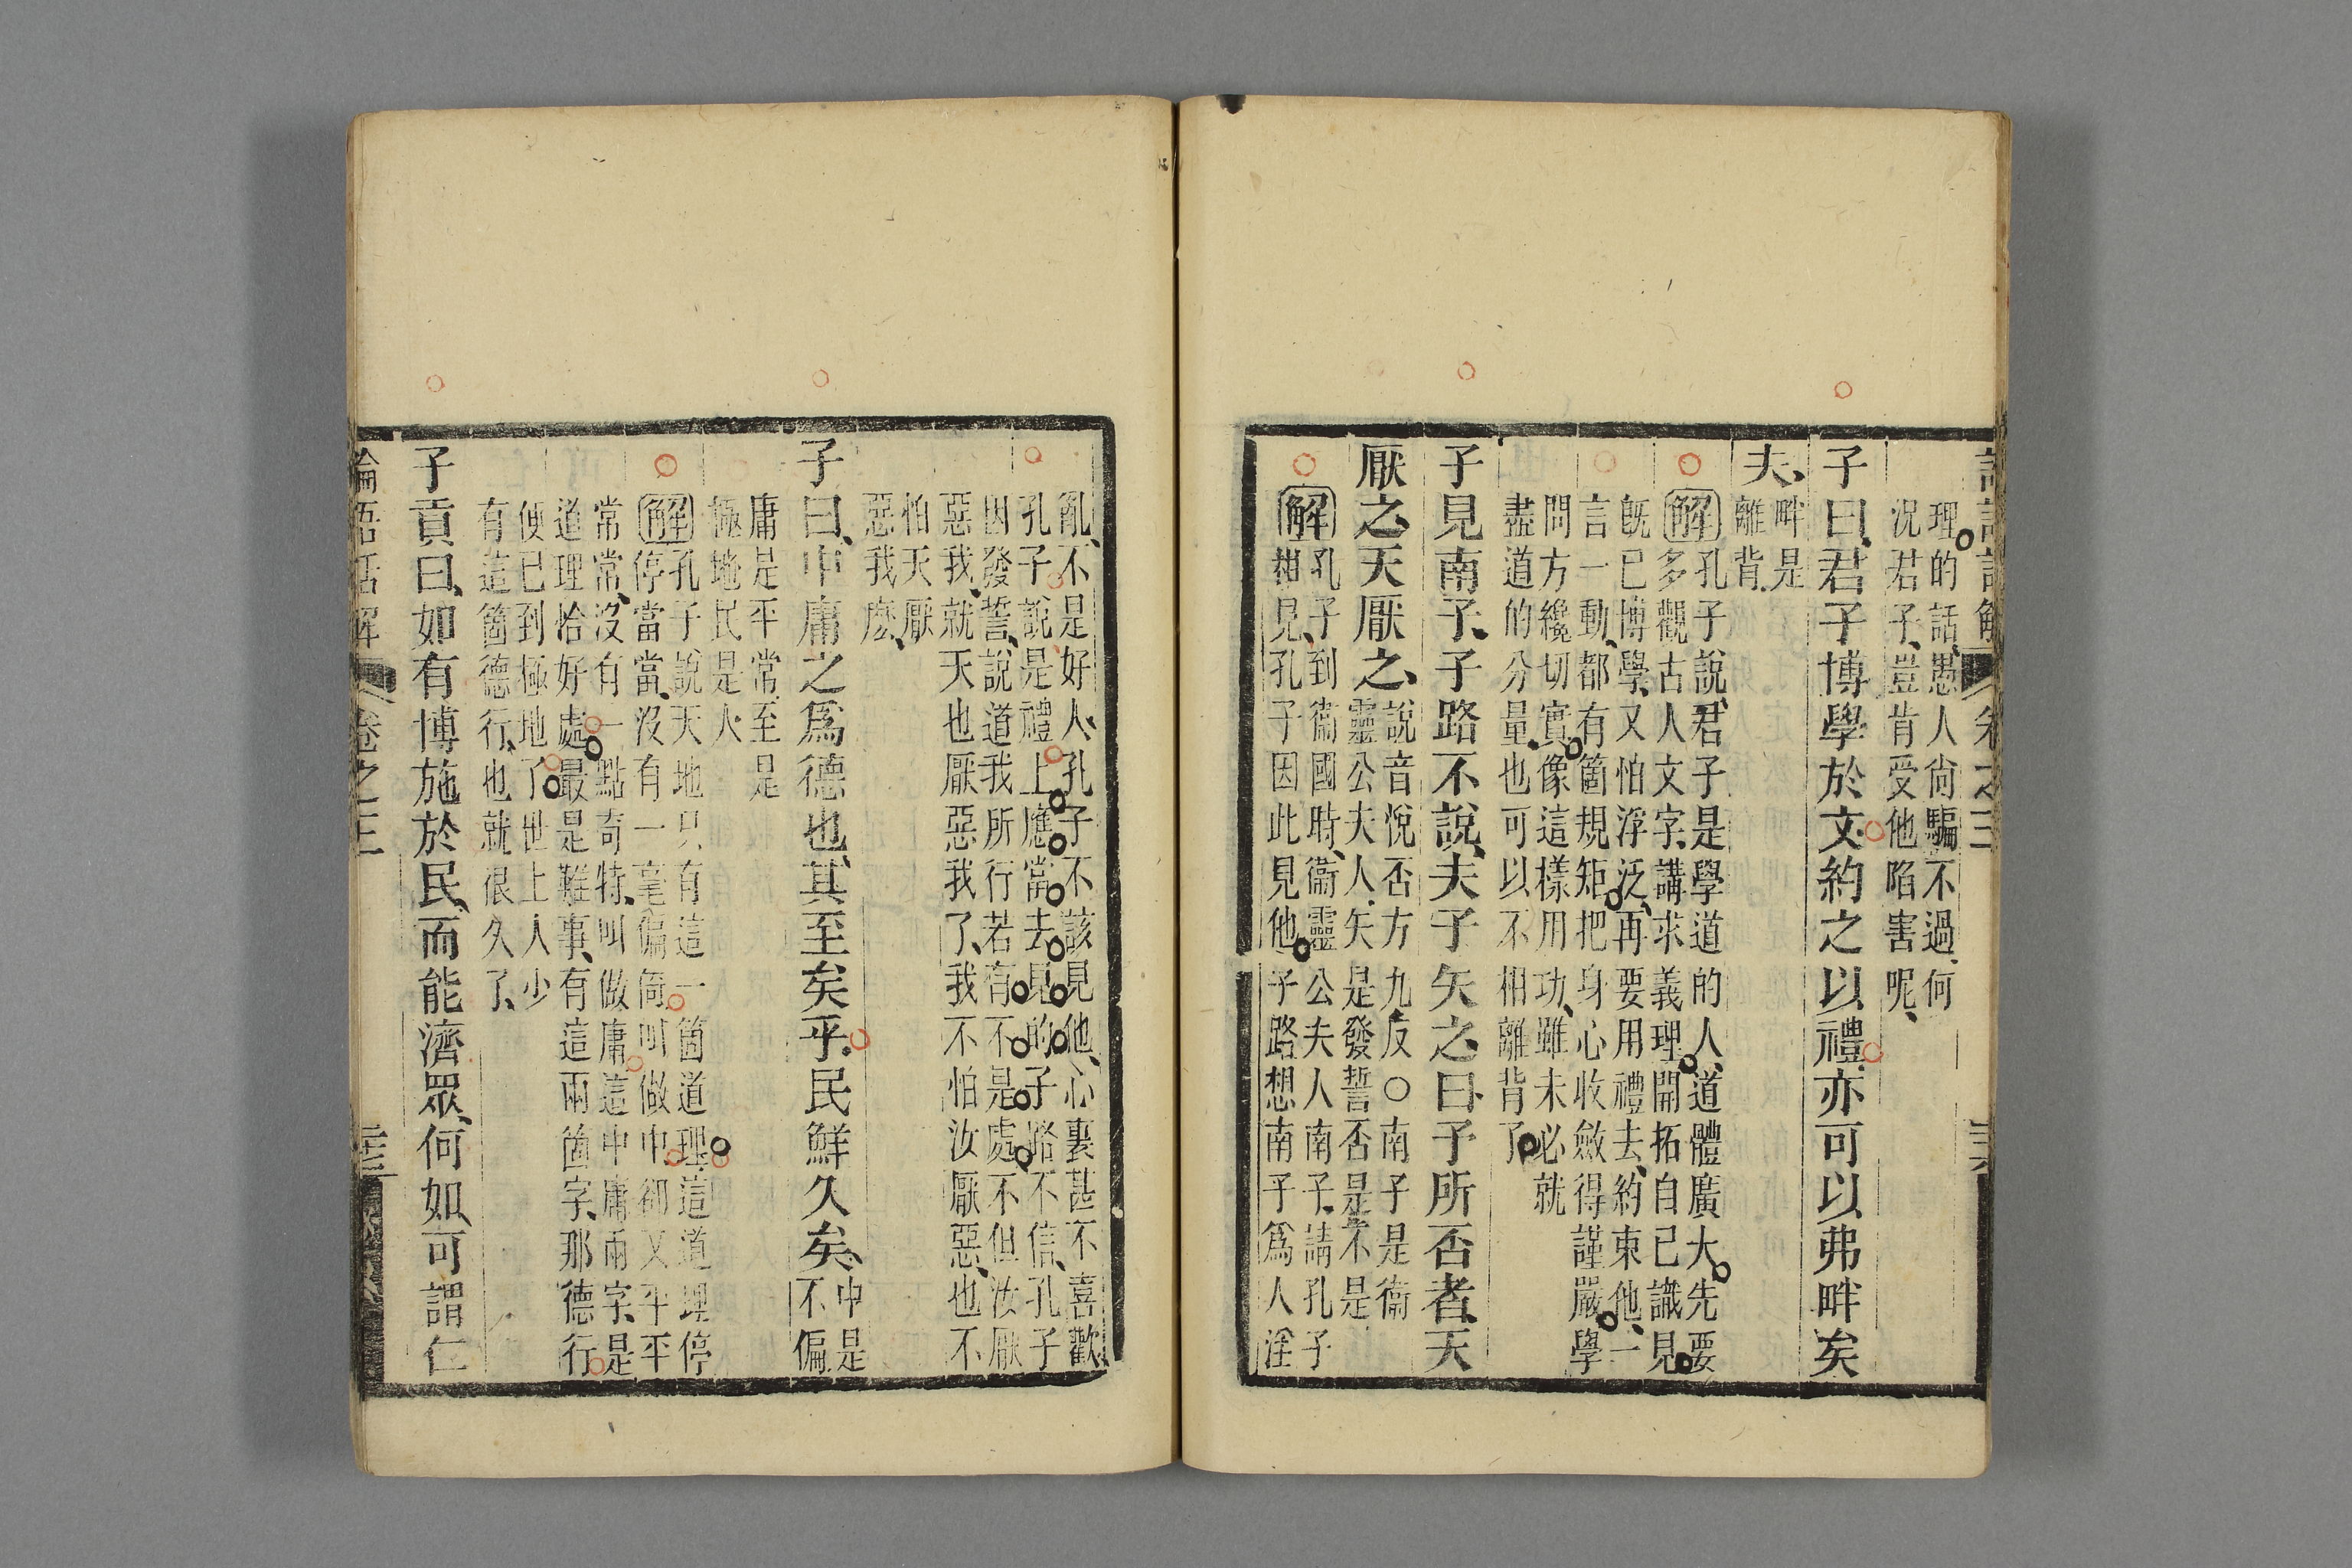 理的話、愚人尙騙不過、何
況君子、豈肯受他陷害呢、
子曰、君子博學於文、約之以禮、亦可以弗畔矣
夫、
畔是
離背、
解
孔子說、君子是學道的人、道體廣大、先要
多觀古人文字、講求義理、開拓自己識見、
旣已博學、又怕浮泛、再要用禮去約束他、一
言一動、都有箇規矩、把身心收斂得謹嚴、學
問方纔切實、像這樣用功、雖未必就
盡道的分量、也可以不相離背了、
子見南子、子路不說、夫子矢之、曰、予所否者、天
厭之、天厭之、
說音悅否方九反○南子是衞
靈公夫人、矢是發誓否是不是
解
孔子到衞國時、衞靈公夫人南子、請孔子
相見、孔子因此見他、子路想南子爲人淫
亂、不是好人、孔子不該見他、心裏甚不喜歡、
孔子說是禮上應當去見的、子路不信、孔子
因發誓、說道我所行若有不是處、不但汝厭
惡我、就天也厭惡我了、我不怕汝厭惡、也不
怕天厭
惡我麽、
子曰、中庸之爲德也、其至矣乎、民鮮久矣、
中是
不偏
庸是平常、至是
極地民是人、
解
孔子說、天地只有這一箇道理、這道理停
停當當、沒有一毫偏倚、叫做中、卻又平平
常常、沒有一點奇特、叫做庸、這中庸兩字、是
道理恰好處、最是難事、有這兩箇字、那德行
便已到極地了、世上人少
有這箇德行、也就很久了、
子貢曰、如有博施於民、而能濟眾、何如、可謂仁
論語話解
卷之三